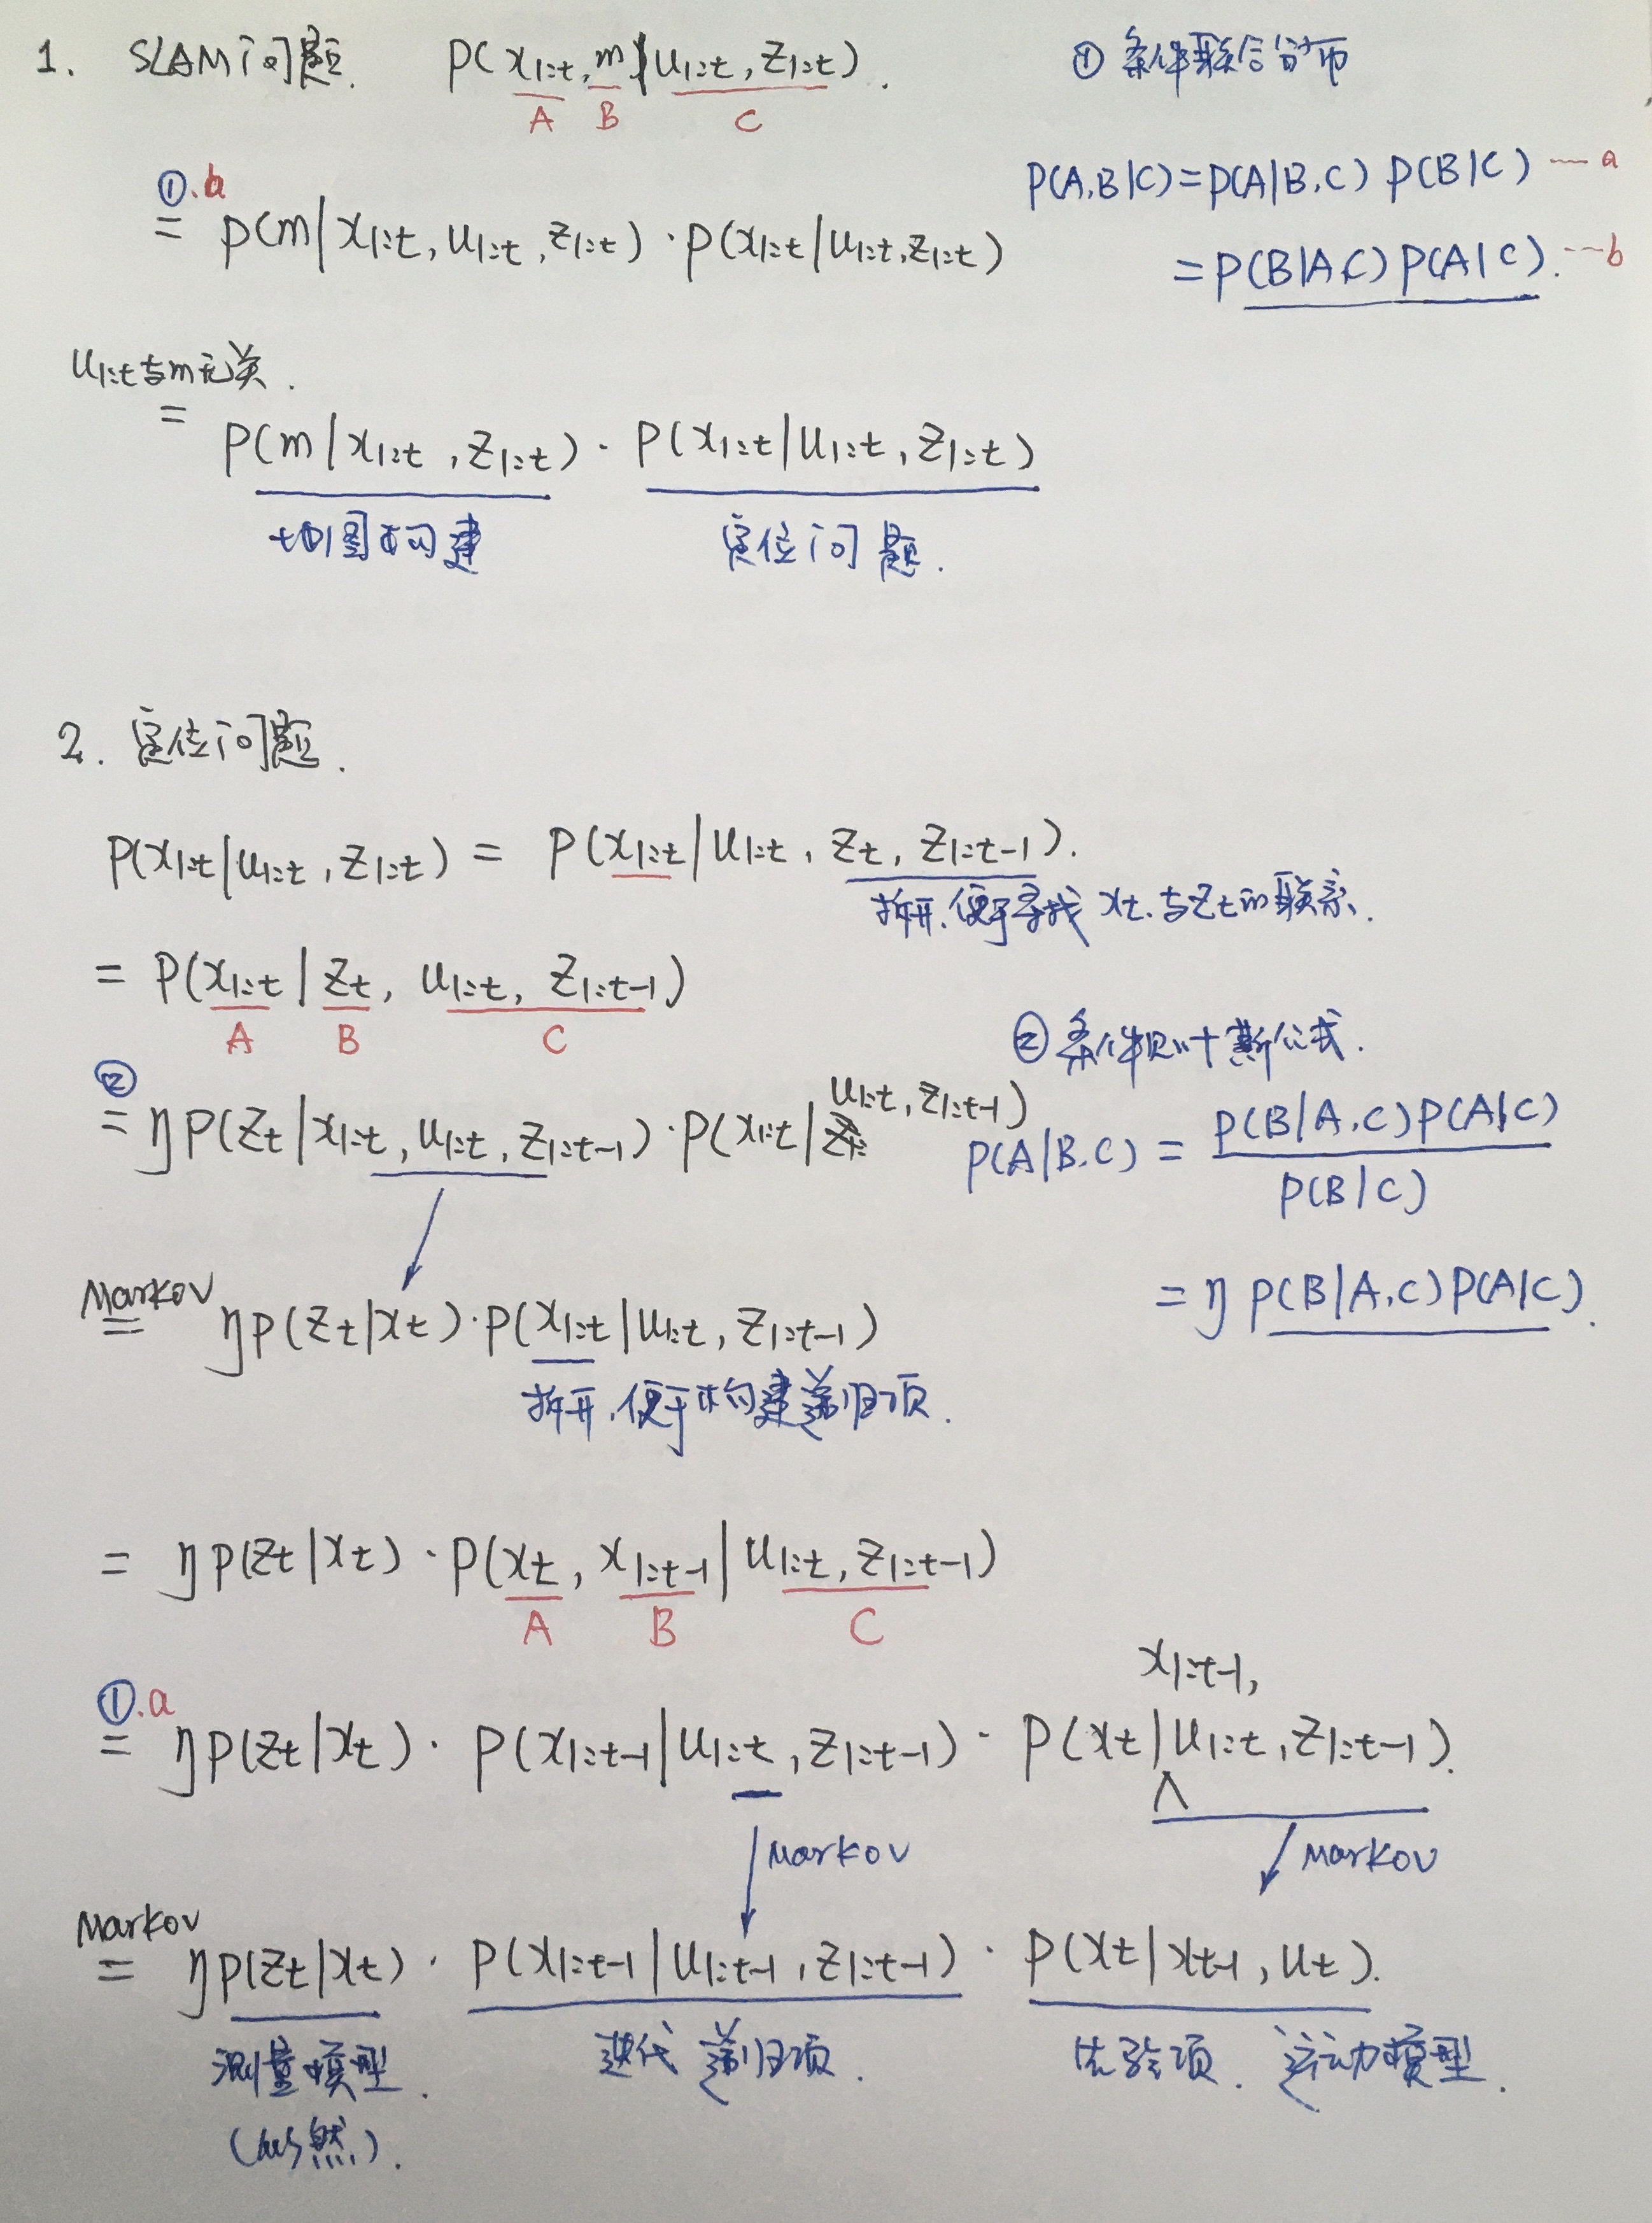 1. SLAM问题. P(x1:t, m | u1:t, z1:t).
A B C
① 条件联合分布
P(A,B|C)=P(A|B,C) P(B|C) ---- a
=P(B|A,C) P(A|C). ---b
①.b
= p(m|x1:t, u1:t, z1:t) · p(x1:t|u1:t, z1:t)
u1:t与m无关.
= P(m|x1:t, z1:t) · P(x1:t|u1:t, z1:t)
地图构建 定位问题.
2. 定位问题.
P(x1:t|u1:t, z1:t) = P(x1:t|u1:t, zt, z1:t-1).
拆开, 便于寻找 xt 与zt的联系.
= P(x1:t | zt, u1:t, z1:t-1)
A B C
② 条件贝叶斯公式.
P(A|B,C) = P(B|A,C)P(A|C) / P(B|C)
= η P(B|A,C)P(A|C).
②
= ηP(zt|x1:t, u1:t, z1:t-1) · P(x1:t| u1:t, z1:t-1)
Markov
= ηp(zt|xt) · P(x1:t|u1:t, z1:t-1)
拆开, 便于构建递归项.
= ηp(zt|xt) · P(xt, x1:t-1|u1:t, z1:t-1)
A B C
①.a
= ηp(zt|xt) · P(x1:t-1|u1:t, z1:t-1) · P(xt| x1:t-1, u1:t, z1:t-1).
Markov Markov
Markov
= ηp(zt|xt) · P(x1:t-1|u1:t-1, z1:t-1) · P(xt|xt-1, ut).
测量模型. 迭代 递归项. 先验项. 运动模型.
(似然).